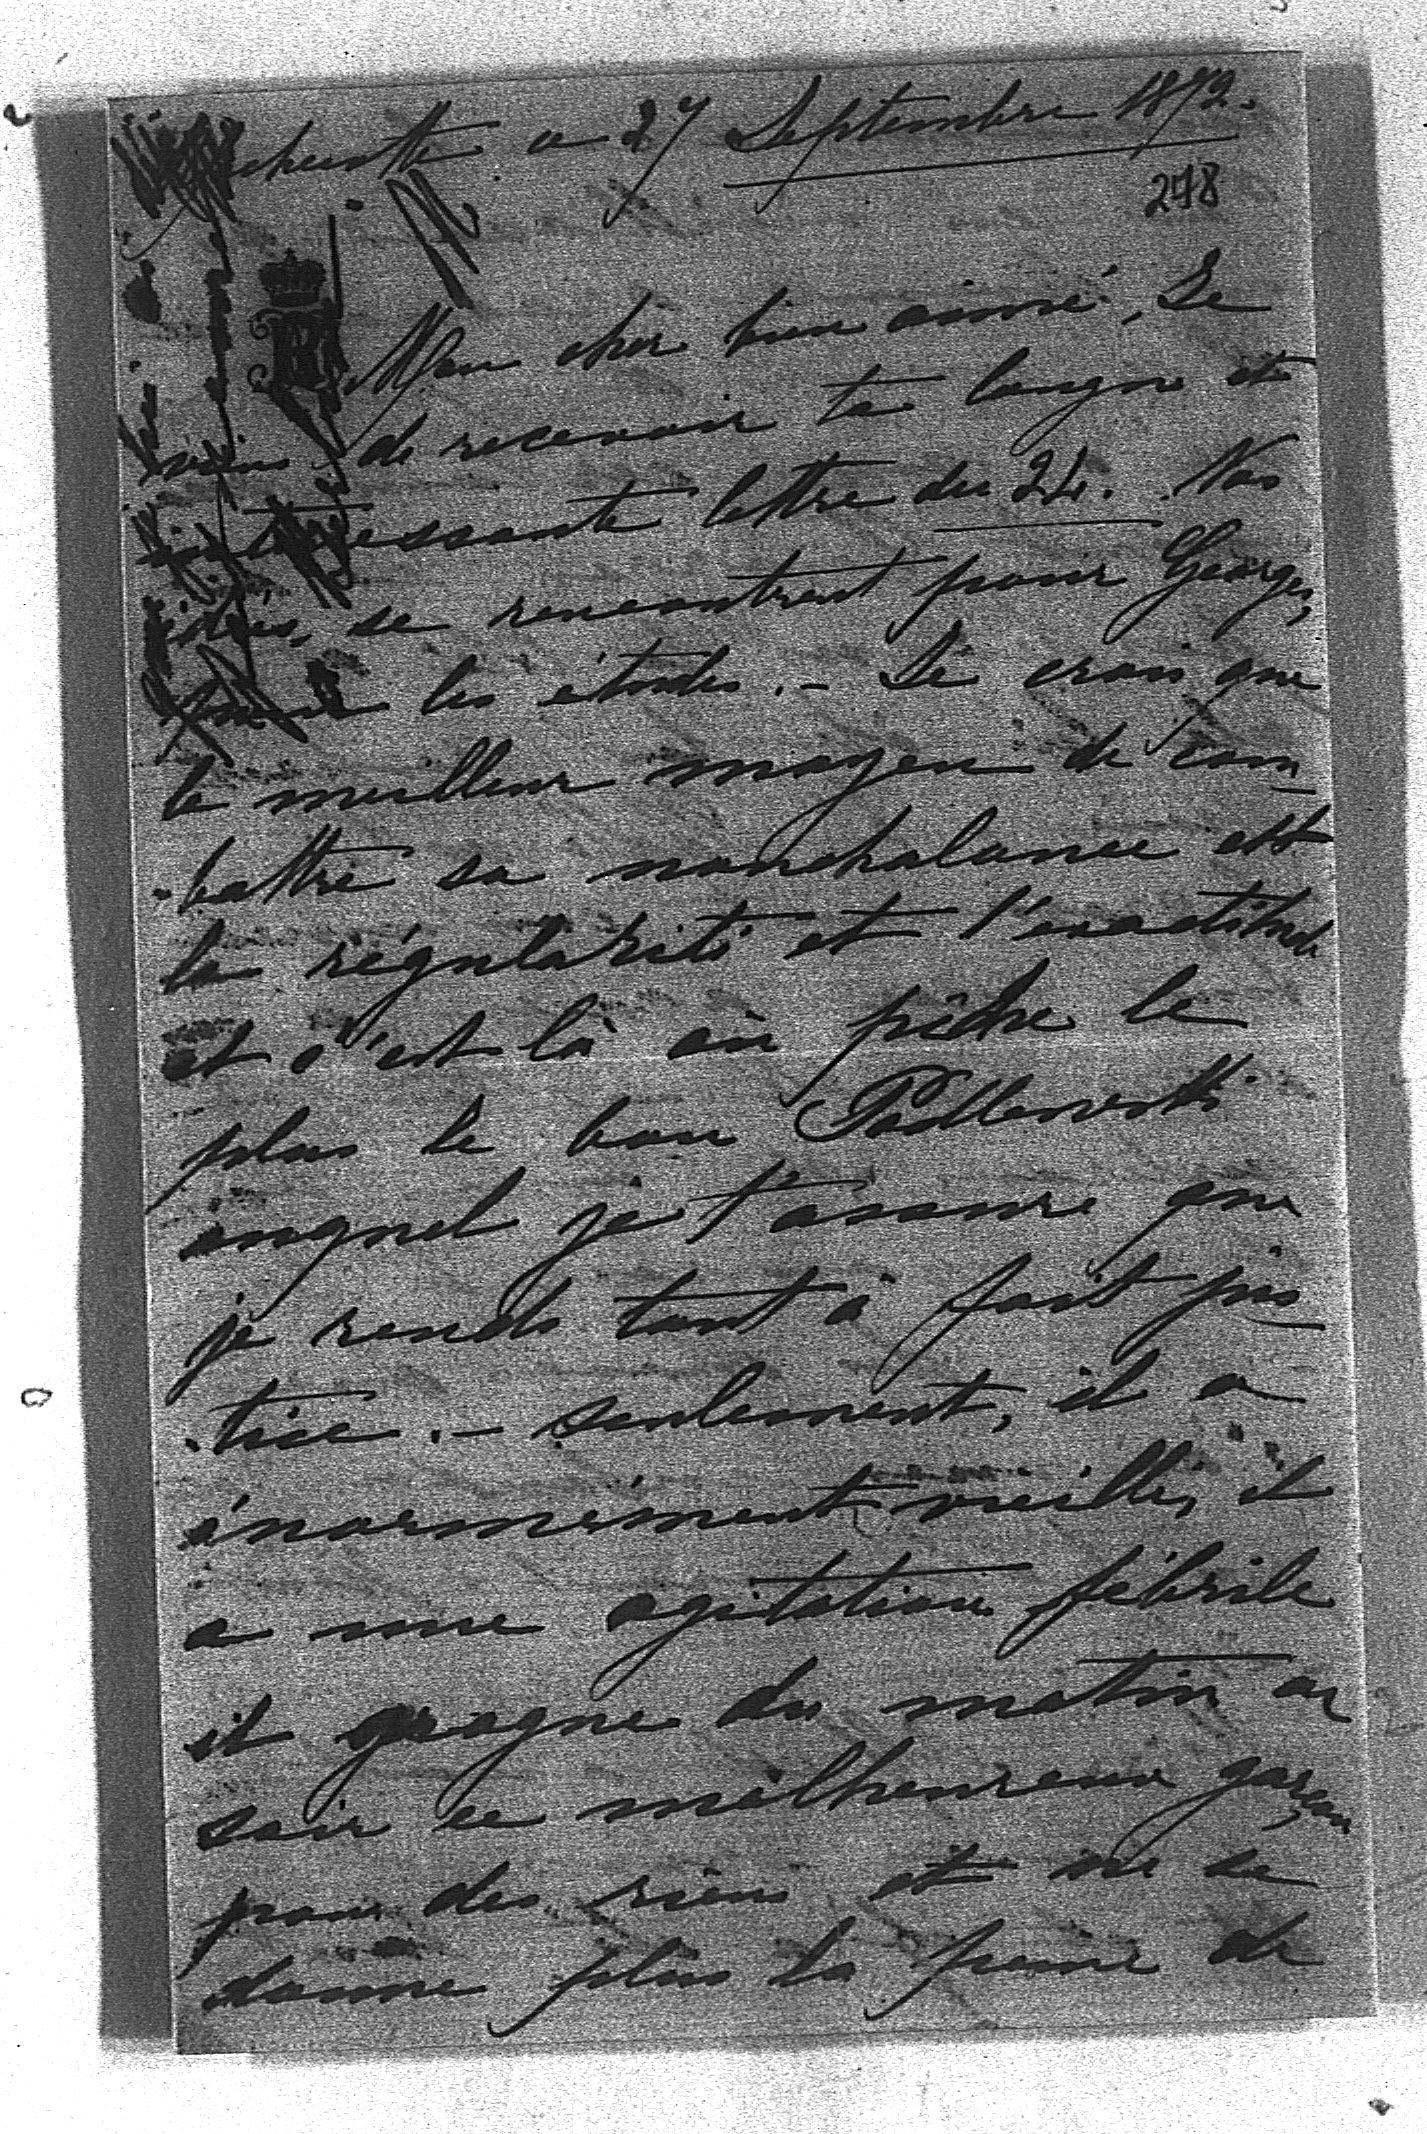 ce 27 Septembre 1872.
248
Mon cher bien aimé, Je
viens de recevoir ta longue et
intéressante lettre du 24. Nos
idées, se rencontrent pour Georges,
pour les études. - Je crois que
le meilleur moyen de com-
-battre sa nonchalance est
la régularité et l'exactitude
et c'est là où pêche le
plus le bon Podlewski
auquel je t'assure que
je rends tout à fait jus-
-tice. - Seulement, il a
énormément vieilli, il
a une agitation fébrile
il grogne du matin au
soir ce malheureux garçon
pour des riens et ne se
donne plus la peine de